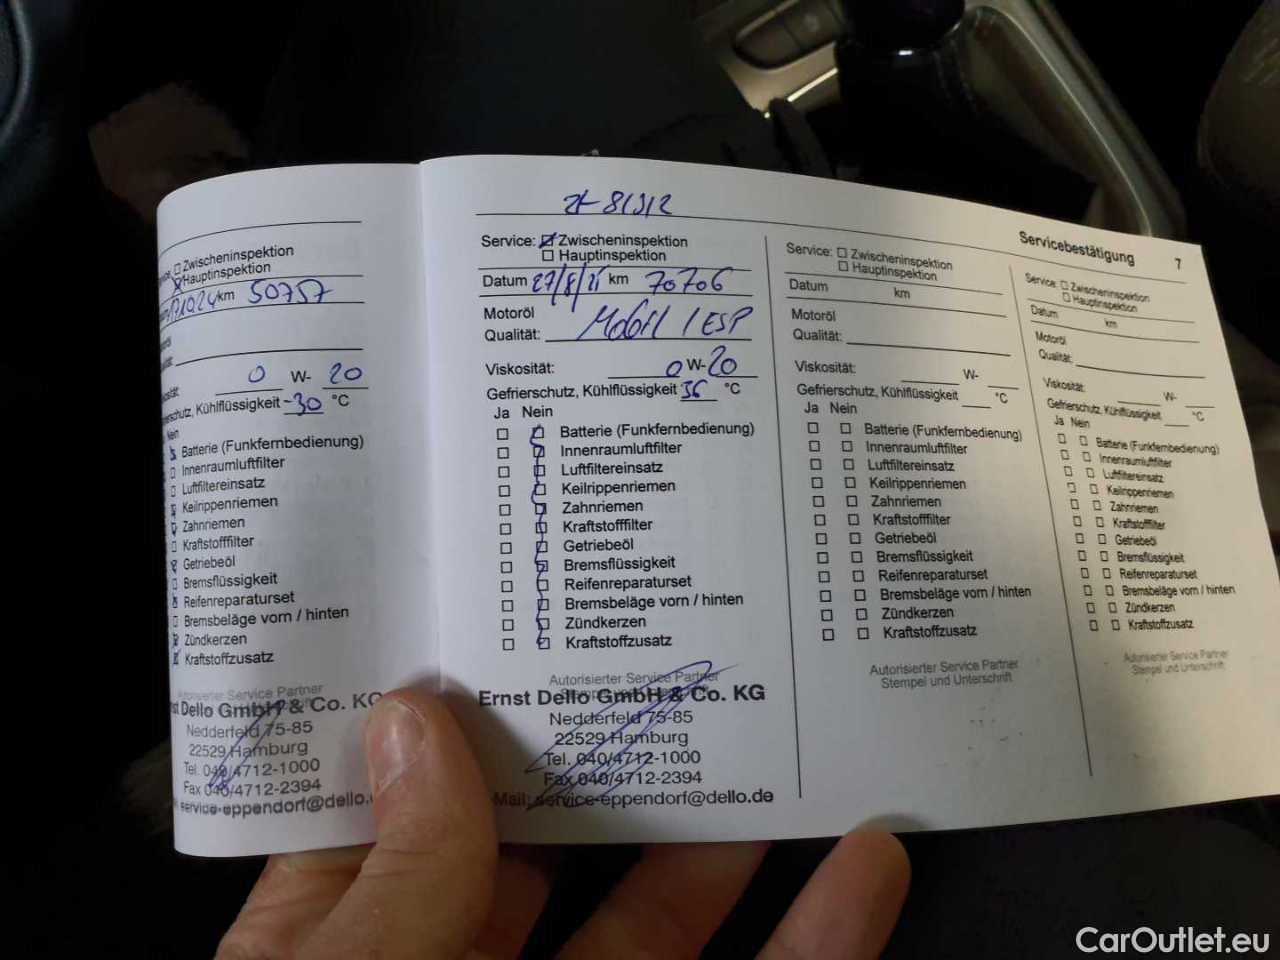 Zwischeninspektion
Hauptinspektion
km 50757
0 W- 20
Kühlflüssigkeit -30 °C
Nein
Batterie (Funkfernbedienung)
Innenraumluftfilter
Luftfiltereinsatz
Keilrippenriemen
Zahnriemen
Kraftstofffilter
Getriebeöl
Bremsflüssigkeit
Reifenreparaturset
Bremsbeläge vorn / hinten
Zündkerzen
Kraftstoffzusatz
Autorisierter Service Partner
Dello GmbH & Co. KG
Nedderfeld 75-85
22529 Hamburg
Tel. 040/4712-1000
Fax 040/4712-2394
service-eppendorf@dello.
Service: Zwischeninspektion
Hauptinspektion
Datum 27/8/21 km 70706
Motoröl
Qualität: Mobil 1 ESP
Viskosität: 0 W- 20
Gefrierschutz, Kühlflüssigkeit 36 °C
Ja Nein
Batterie (Funkfernbedienung)
Innenraumluftfilter
Luftfiltereinsatz
Keilrippenriemen
Zahnriemen
Kraftstofffilter
Getriebeöl
Bremsflüssigkeit
Reifenreparaturset
Bremsbeläge vorn / hinten
Zündkerzen
Kraftstoffzusatz
Autorisierter Service Partner
Ernst Dello GmbH & Co. KG
Nedderfeld 75-85
22529 Hamburg
Tel. 040/4712-1000
Fax 040/4712-2394
Mail: service-eppendorf@dello.de
Servicebestätigung 7
Service: Zwischeninspektion
Hauptinspektion
Datum km
Motoröl
Qualität:
Viskosität: W-
Gefrierschutz, Kühlflüssigkeit °C
Ja Nein
Batterie (Funkfernbedienung)
Innenraumluftfilter
Luftfiltereinsatz
Keilrippenriemen
Zahnriemen
Kraftstofffilter
Getriebeöl
Bremsflüssigkeit
Reifenreparaturset
Bremsbeläge vorn / hinten
Zündkerzen
Kraftstoffzusatz
Autorisierter Service Partner
Stempel und Unterschrift
Service: Zwischeninspektion
Hauptinspektion
Datum km
Motoröl
Qualität:
Viskosität: W-
Gefrierschutz, Kühlflüssigkeit °C
Ja Nein
Batterie (Funkfernbedienung)
Innenraumluftfilter
Luftfiltereinsatz
Keilrippenriemen
Zahnriemen
Kraftstofffilter
Getriebeöl
Bremsflüssigkeit
Reifenreparaturset
Bremsbeläge vorn / hinten
Zündkerzen
Kraftstoffzusatz
Autorisierter Service Partner
Stempel und Unterschrift
CarOutlet.eu